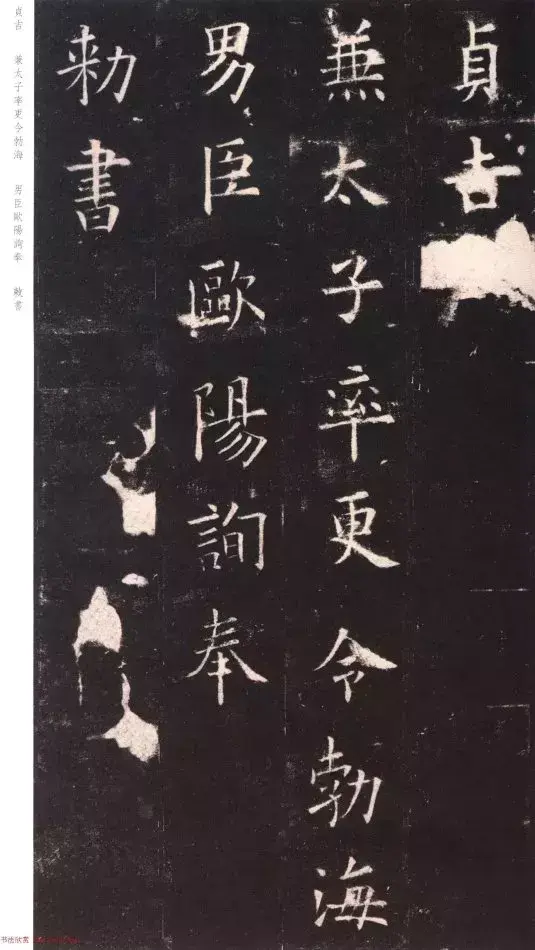 貞吉
兼太子率更令勃海
男臣歐陽詢奉
勑書
貞吉 兼太子率更令勃海 男臣歐陽詢奉 敕書
书法欣赏